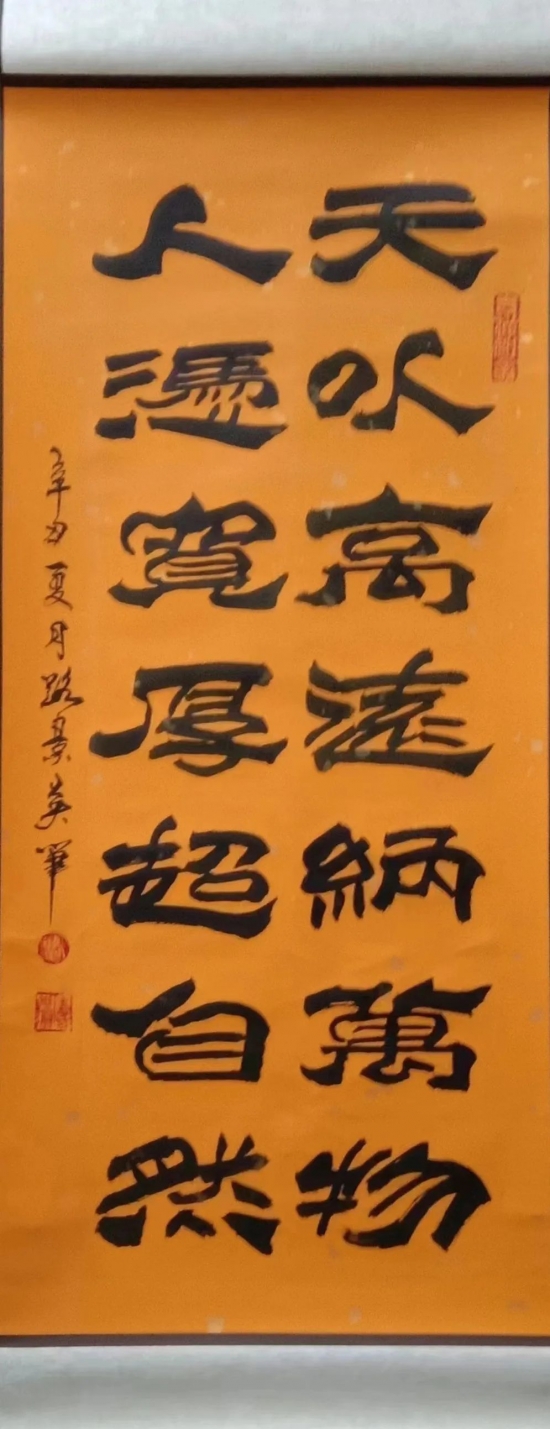 天水高遠納萬物
人憑寬厚超自然
辛丑夏月路景英筆